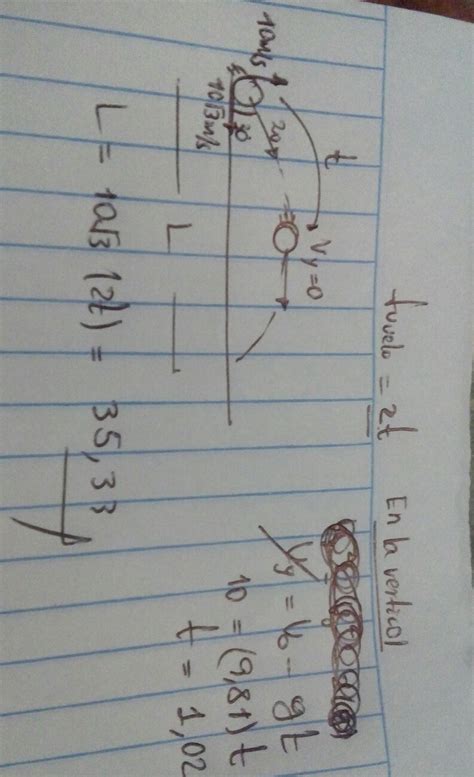 tvuelo = 2t
En la vertical
Vy = V₀ - gt
10 = (9,81) t
t = 1,02
t
10m/s
20
30
10√3 m/s
Vy=0
L
L = 10√3 (2t) = 35,33